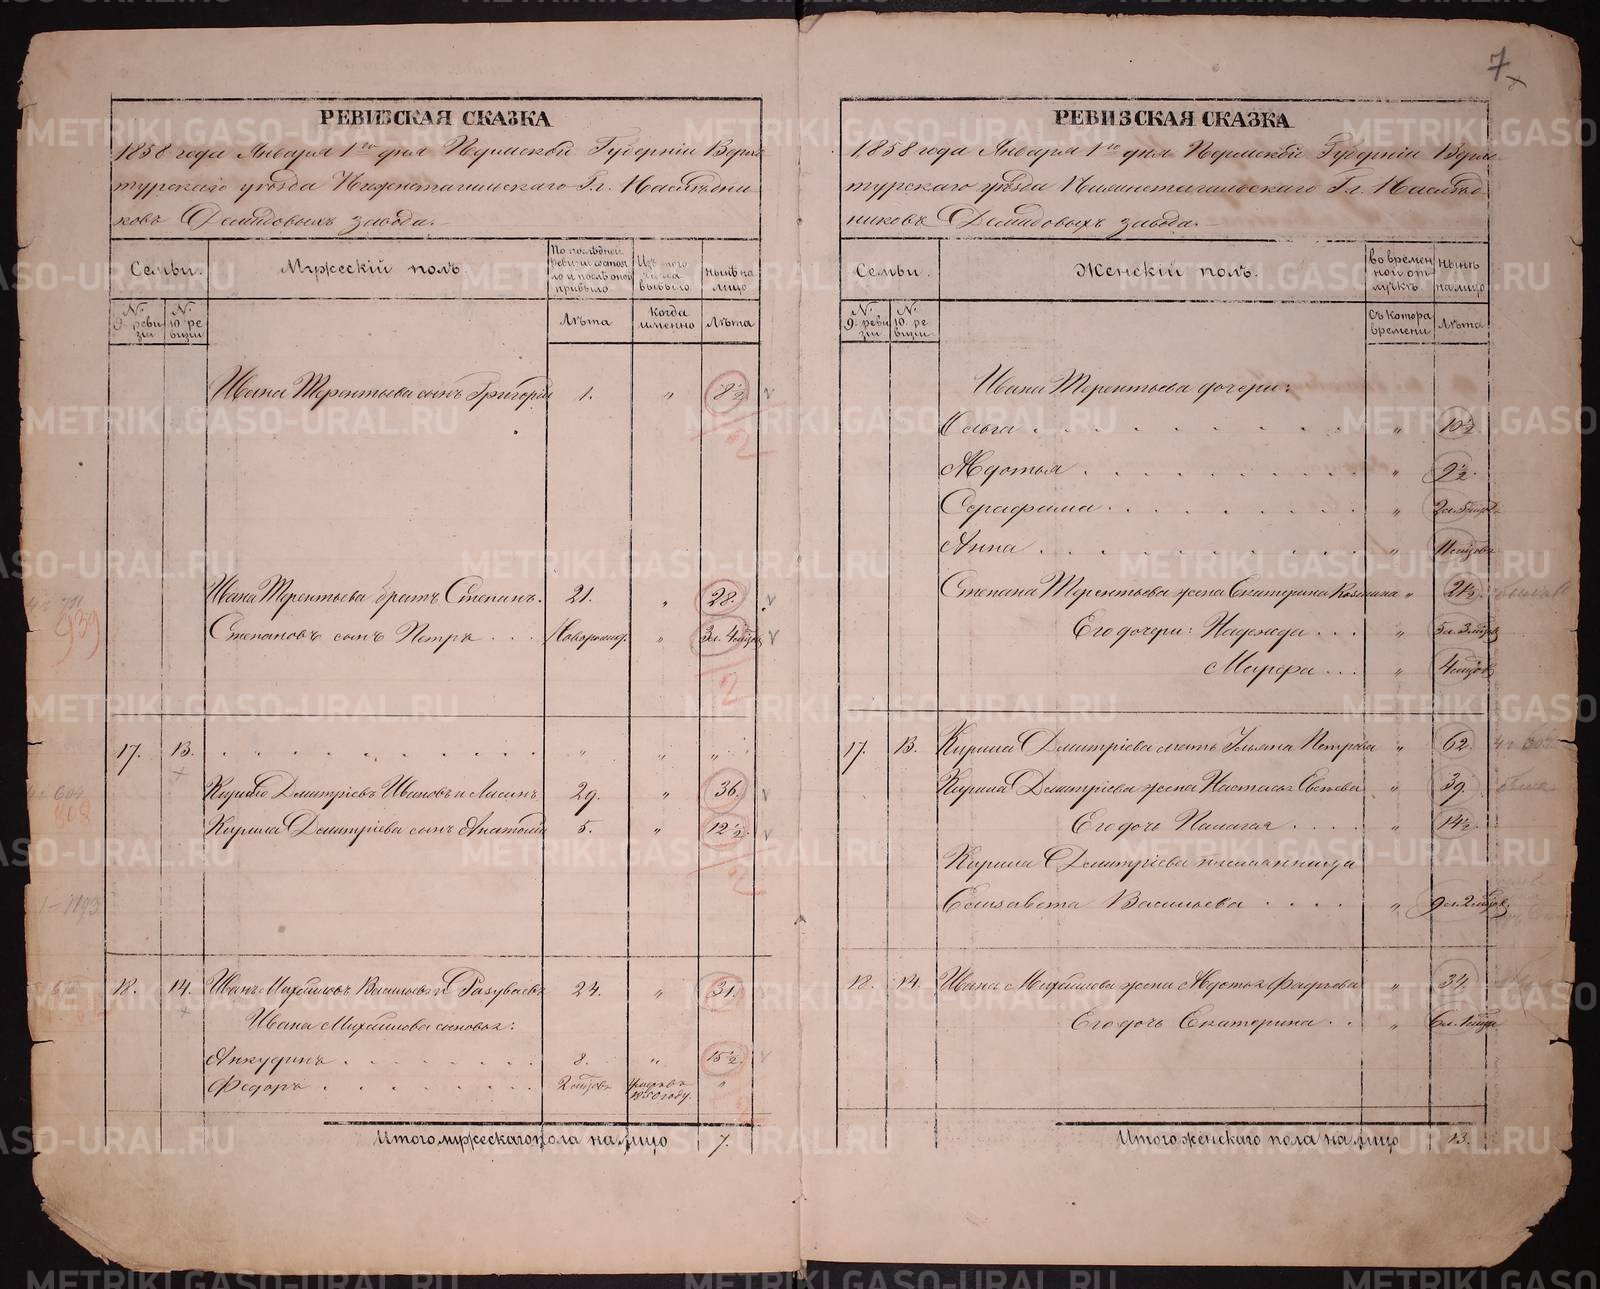 7
РЕВИЗСКАЯ СКАЗКА
1858 года Января 1го дня Пермской Губерніи Верхо
турскаго уѣзда Нижнетагильскаго Гг. Наслѣдни
ковъ Демидовыхъ завода.
Семьи. Мужескій полъ. По послѣдней ревизіи состояло и послѣ оной прибыло Изъ того числа выбыло нынѣ на лицо
№ 9. ревизіи № 10 ревизіи Лѣта когда именно Лѣта
Ивана Терентьева сынъ Григорій 1. „ 8½
Ивана Терентьева братъ Степанъ. 21. „ 28.
Степановъ сынъ Петръ . . . Новорожд. „ 3л. 4мцов
17. 13. . . . . . . . . . . . „ „ „
Кирило Дмитріевъ Ивановъ и 29. „ 36.
Кирила Дмитріева сынъ Анатолій 5. „ 12½
18. 14. Иванъ Михайловъ Васильевъ и Разуваевъ 24. „ 31.
Ивана Михайлова сыновья:
Анкудинъ . . . . . . . . 8. „ 15½
Федоръ . . . . . . . . 2 мцовъ 1850 году. „
Итого мужескаго пола на лицо 7.
РЕВИЗСКАЯ СКАЗКА
1858 года Января 1го дня Пермской Губерніи Верхо
турскаго уѣзда Нижнетагильскаго Гг. Наслѣд
никовъ Демидовыхъ завода.
Семьи. Женскій полъ. во временной отлучкѣ. нынѣ на лицо
№ 9. ревизіи № 10 ревизіи Съ котора времени Лѣта
Ивана Терентьева дочери:
Ольга . . . . . . . . . „ 10½
Авдотья . . . . . . . . „ 9½
Серафима . . . . . . . „ 2л. 5мцов
Анна . . . . . . . . . „ 11мцовъ
Степана Терентьева жена Екатерина Козмина „ 21½
Его дочери: Надежда . . . „ 5л. 3мцов
Марфа . . . „ 4мцов
17. 13. Кирила Дмитріева мать Ульяна Петрова „ 62.
Кирила Дмитріева жена Настасья „ 39.
Его дочь Палагея . . . . „ 14½
Кирила Дмитріева племянница
Елизавета Васильева . . . . „ 9л. 2мцов
18. 14. Ивана Михайлова жена Авдотья „ 34.
Его дочь Екатерина . . „ 6л. 1мца
Итого женскаго пола на лицо 13.
METRIKI.GASO-URAL.RU